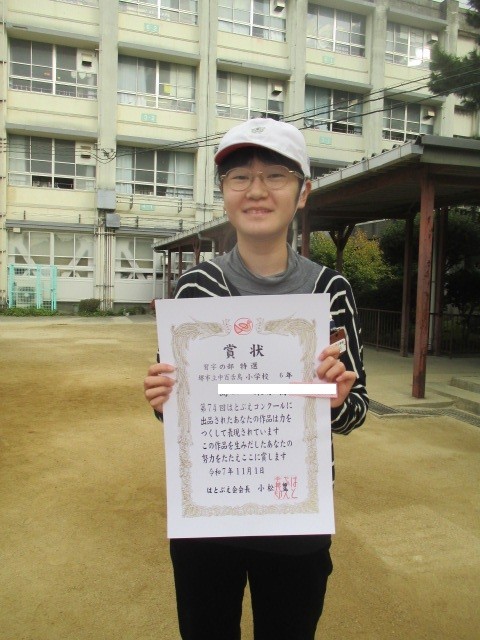 賞状
習字の部 特選
堺市立中百舌鳥小学校 6年
第74回はとぶえコンクールに
出品されたあなたの作品は力を
つくして表現されています
この作品を生みだしたあなたの
努力をたたえここに賞します
令和7年11月1日
はとぶえ会会長 小松